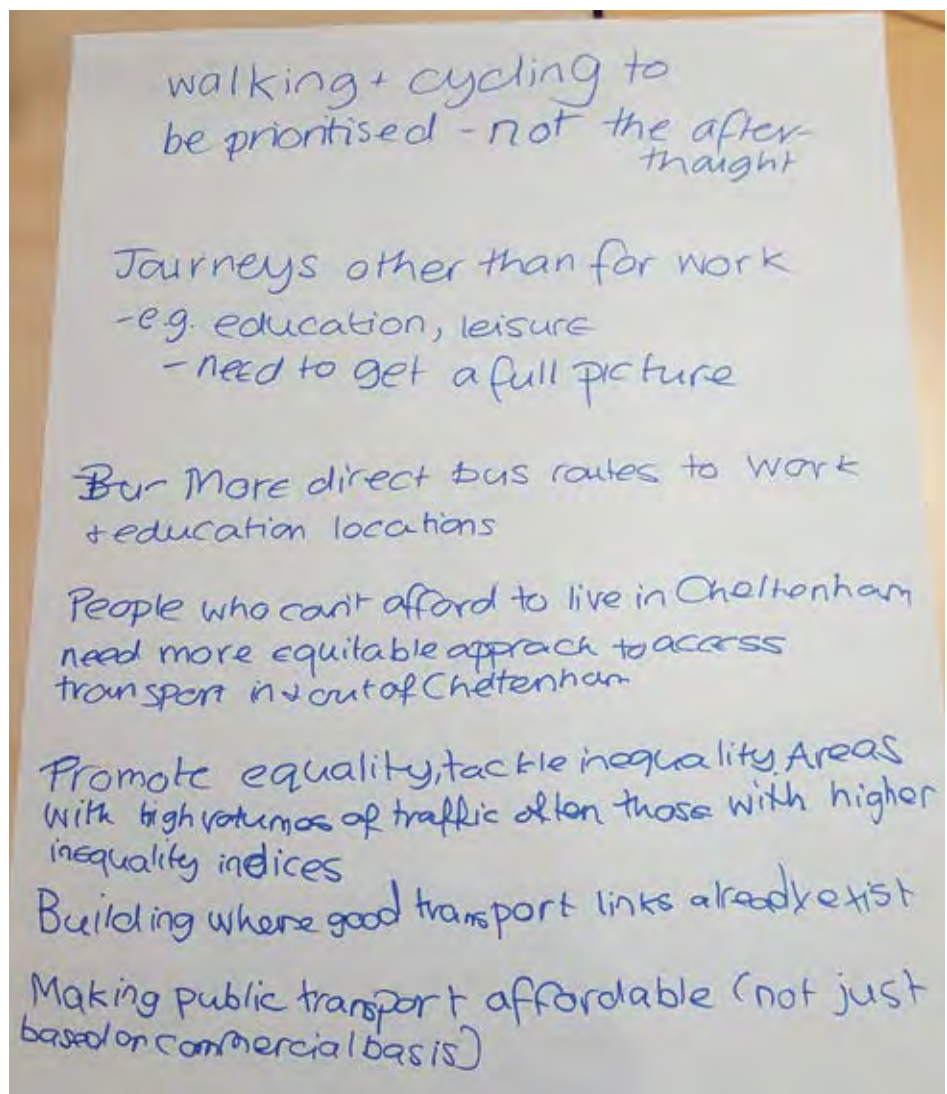 walking + cycling to
be prioritised - not the after-
thought
Journeys other than for work
-e.g. education, leisure
- need to get a full picture
More direct bus routes to work
+ education locations
People who can't afford to live in Cheltenham
need more equitable apprach to access
transport in + out of Cheltenham
Promote equality, tackle inequality. Areas
with high volumes of traffic often those with higher
inequality indices
Building where good transport links already exist
Making public transport affordable (not just
based on commercial basis)